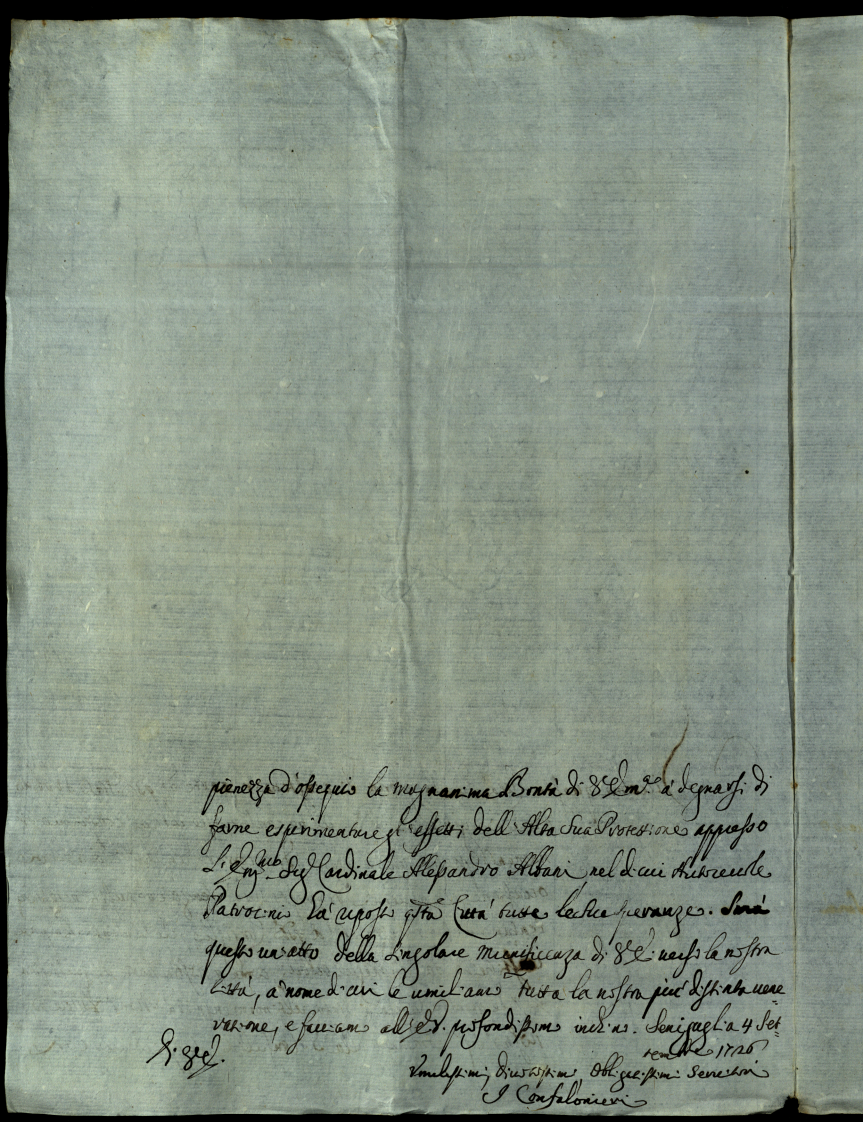 pienezza d'ossequio la magnanima Bontà di V. E. m.ª a degnarsi di
farne esperimentare gl'effetti dell'Alta Sua Protettione appresso
L'Em.mo Sig. Cardinale Alessandro Albani nel di cui Autorevole
Patrocinio hà riposto q.sta Città tutte le sue speranze. Sarà
questo un'atto della singolare munificenza di V. E. verso la nostra
Città, a nome di cui le umiliamo tutta la nostra più distinta vene=
ratione, e facciamo all' E. V. profondissimo inchino. Senigaglia 4 Set=
tembre 1726
Di V. E.
Umilissimi, Divotissimi Obligatissimi Servitori
I Confalonieri